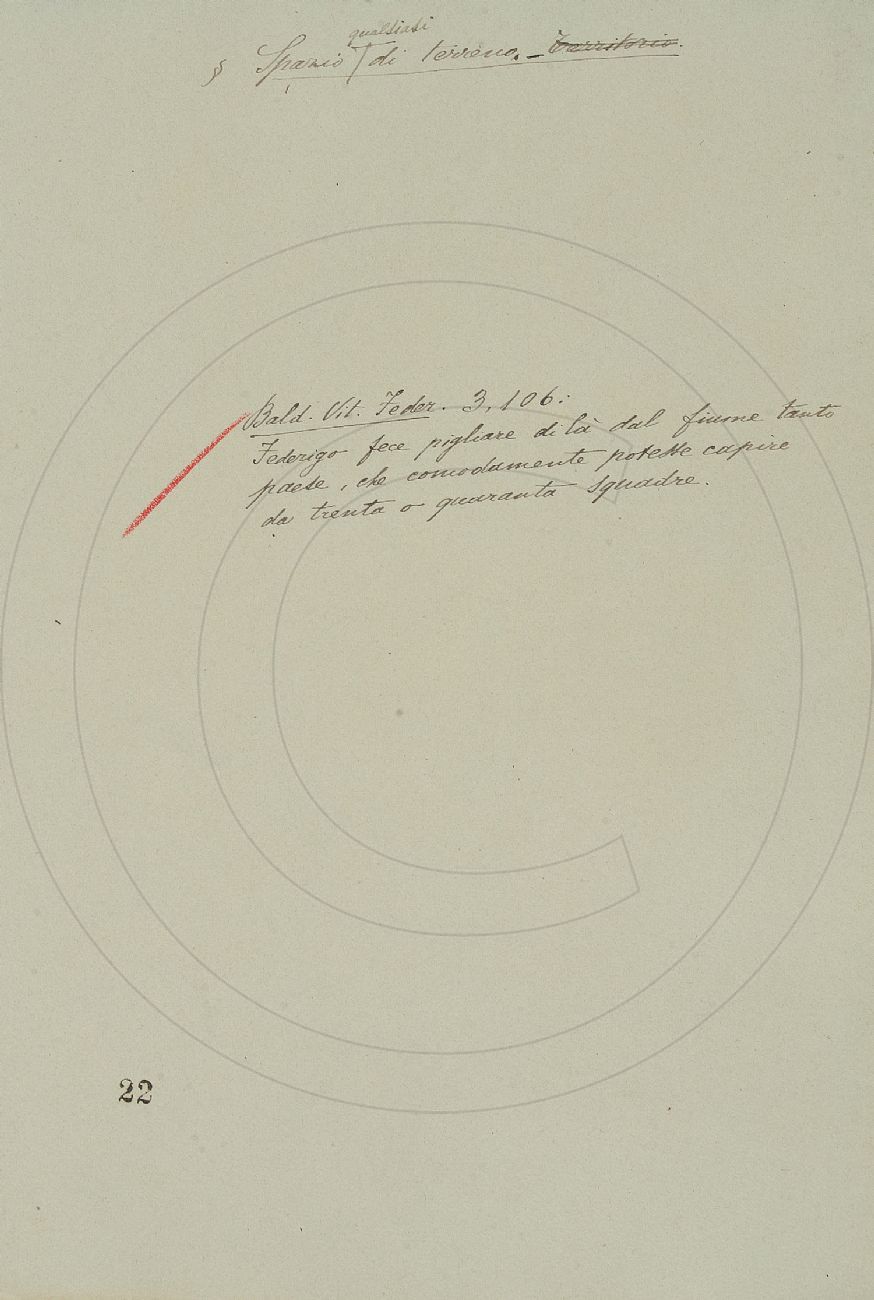 qualsiasi
§ Spazio di terreno. - Territorio.
Bald. Vit. Feder. 3, 106.:
Federigo fece pigliare di là dal fiume tanto
paese, che comodamente potesse capire
da trenta o quaranta squadre.
22